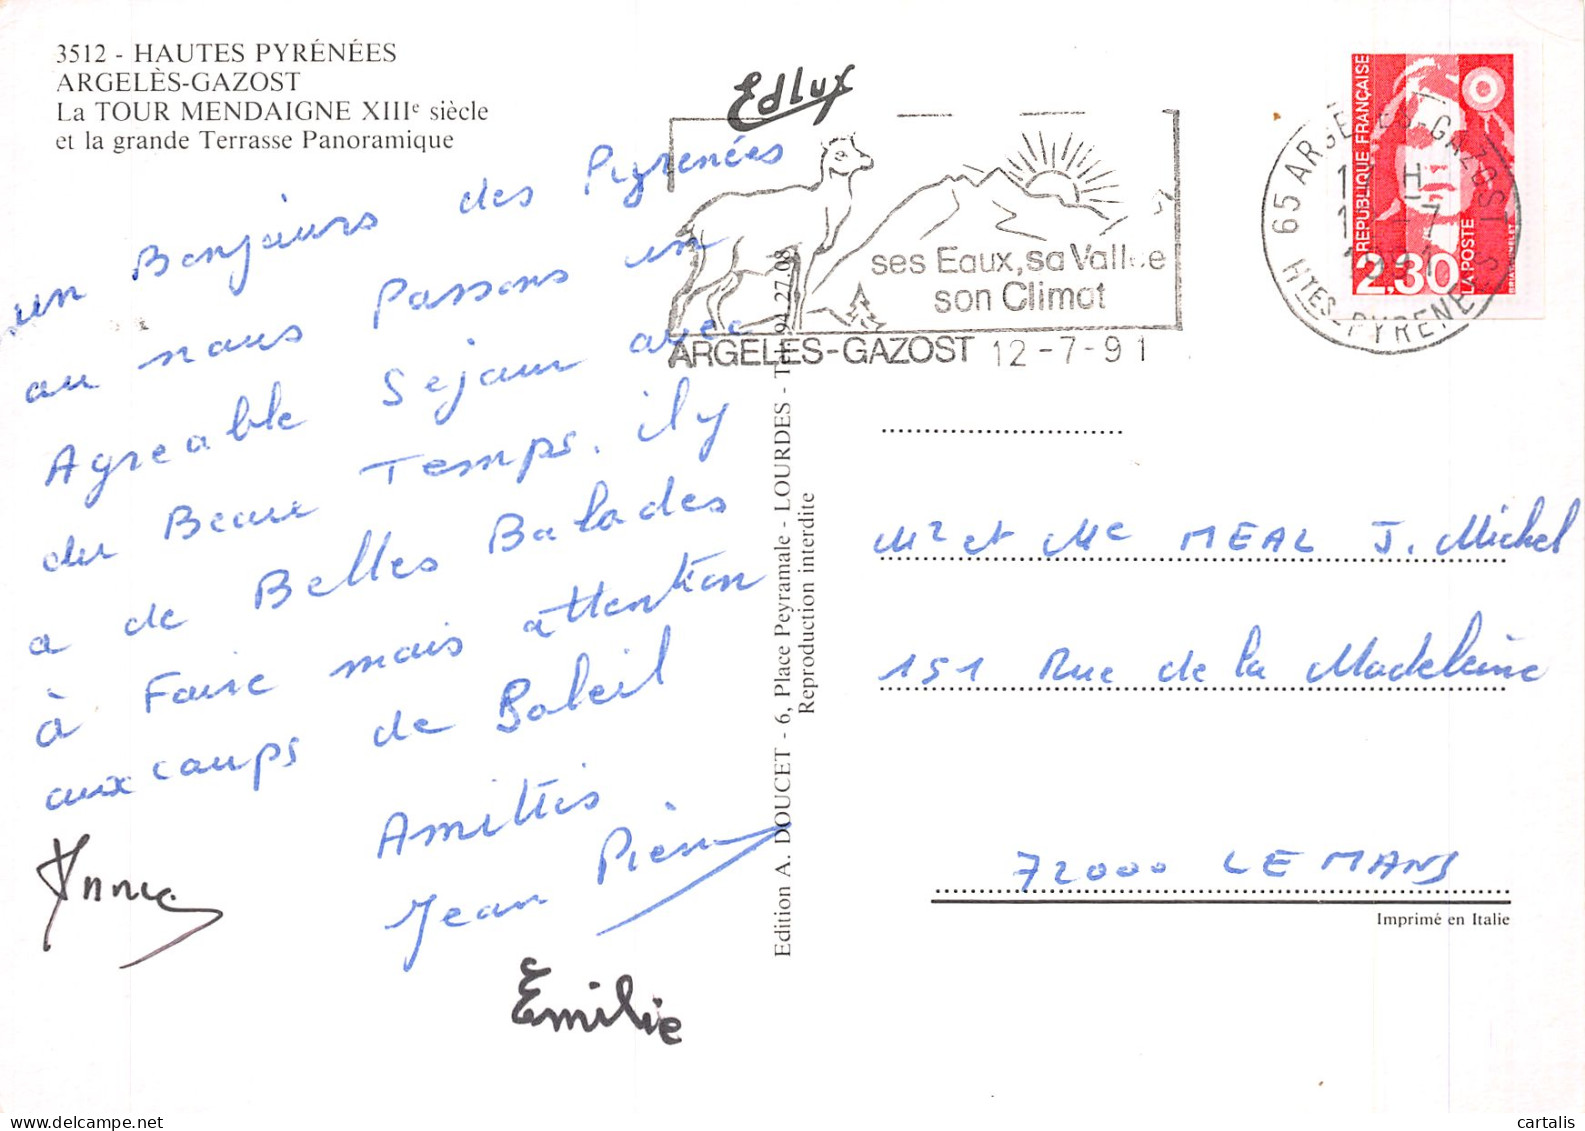 3512 - HAUTES PYRÉNÉES
ARGELÈS-GAZOST
La TOUR MENDAIGNE XIIIe siècle
et la grande Terrasse Panoramique
Edlux
un Bonjours des Pyrenées
au nous Passons un
Agreable Sejour avec
du Beau Temps. il y
a de Belles Balades
à Faire mais attention
aux coups de Soleil
Amitiés
Jean Pierre
Annie
Emilie
ses Eaux, sa Vallée
son Climat
ARGELES-GAZOST 12-7-91
65 ARGELES-GAZOST
HTES-PYRENEES
REPUBLIQUE FRANÇAISE
2,30
LA POSTE
Edition A. DOUCET - 6, Place Peyramale - LOURDES - Tél. 94.27.08
Reproduction interdite
Mr et Me MEAL J. Michel
151 Rue de la Madeleine
72000 LE MANS
Imprimé en Italie
cartalis